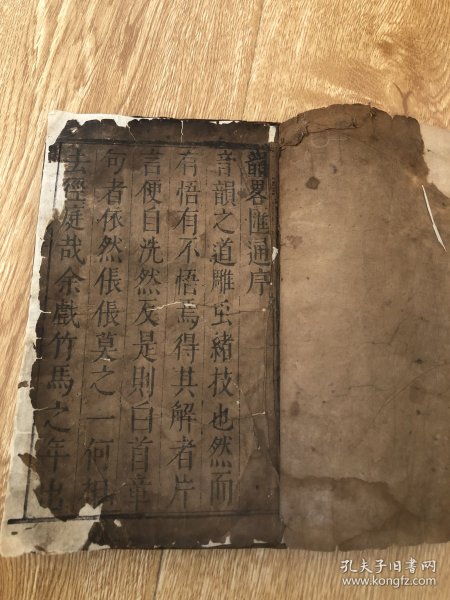 韻畧匯通序
音韻之道雕虫緒技也然而
有悟有不悟焉得其解者片
言便自洗然反是則白首章
句者依然倀倀莫之一何相
去徑庭哉余戲竹馬之年出
孔夫子旧书网
www.kongfz.com